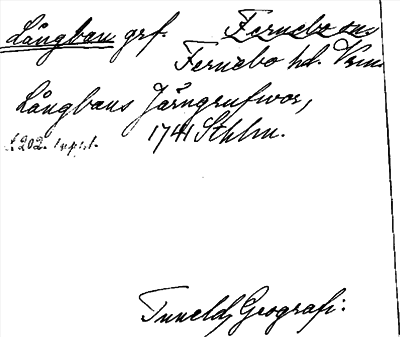 Långban grf. Fernebo sn
Fernebo hd. Vrml
Långbans Järngrufvor,
s. 202. 1741 Sthlm.
Tunelds Geografi.